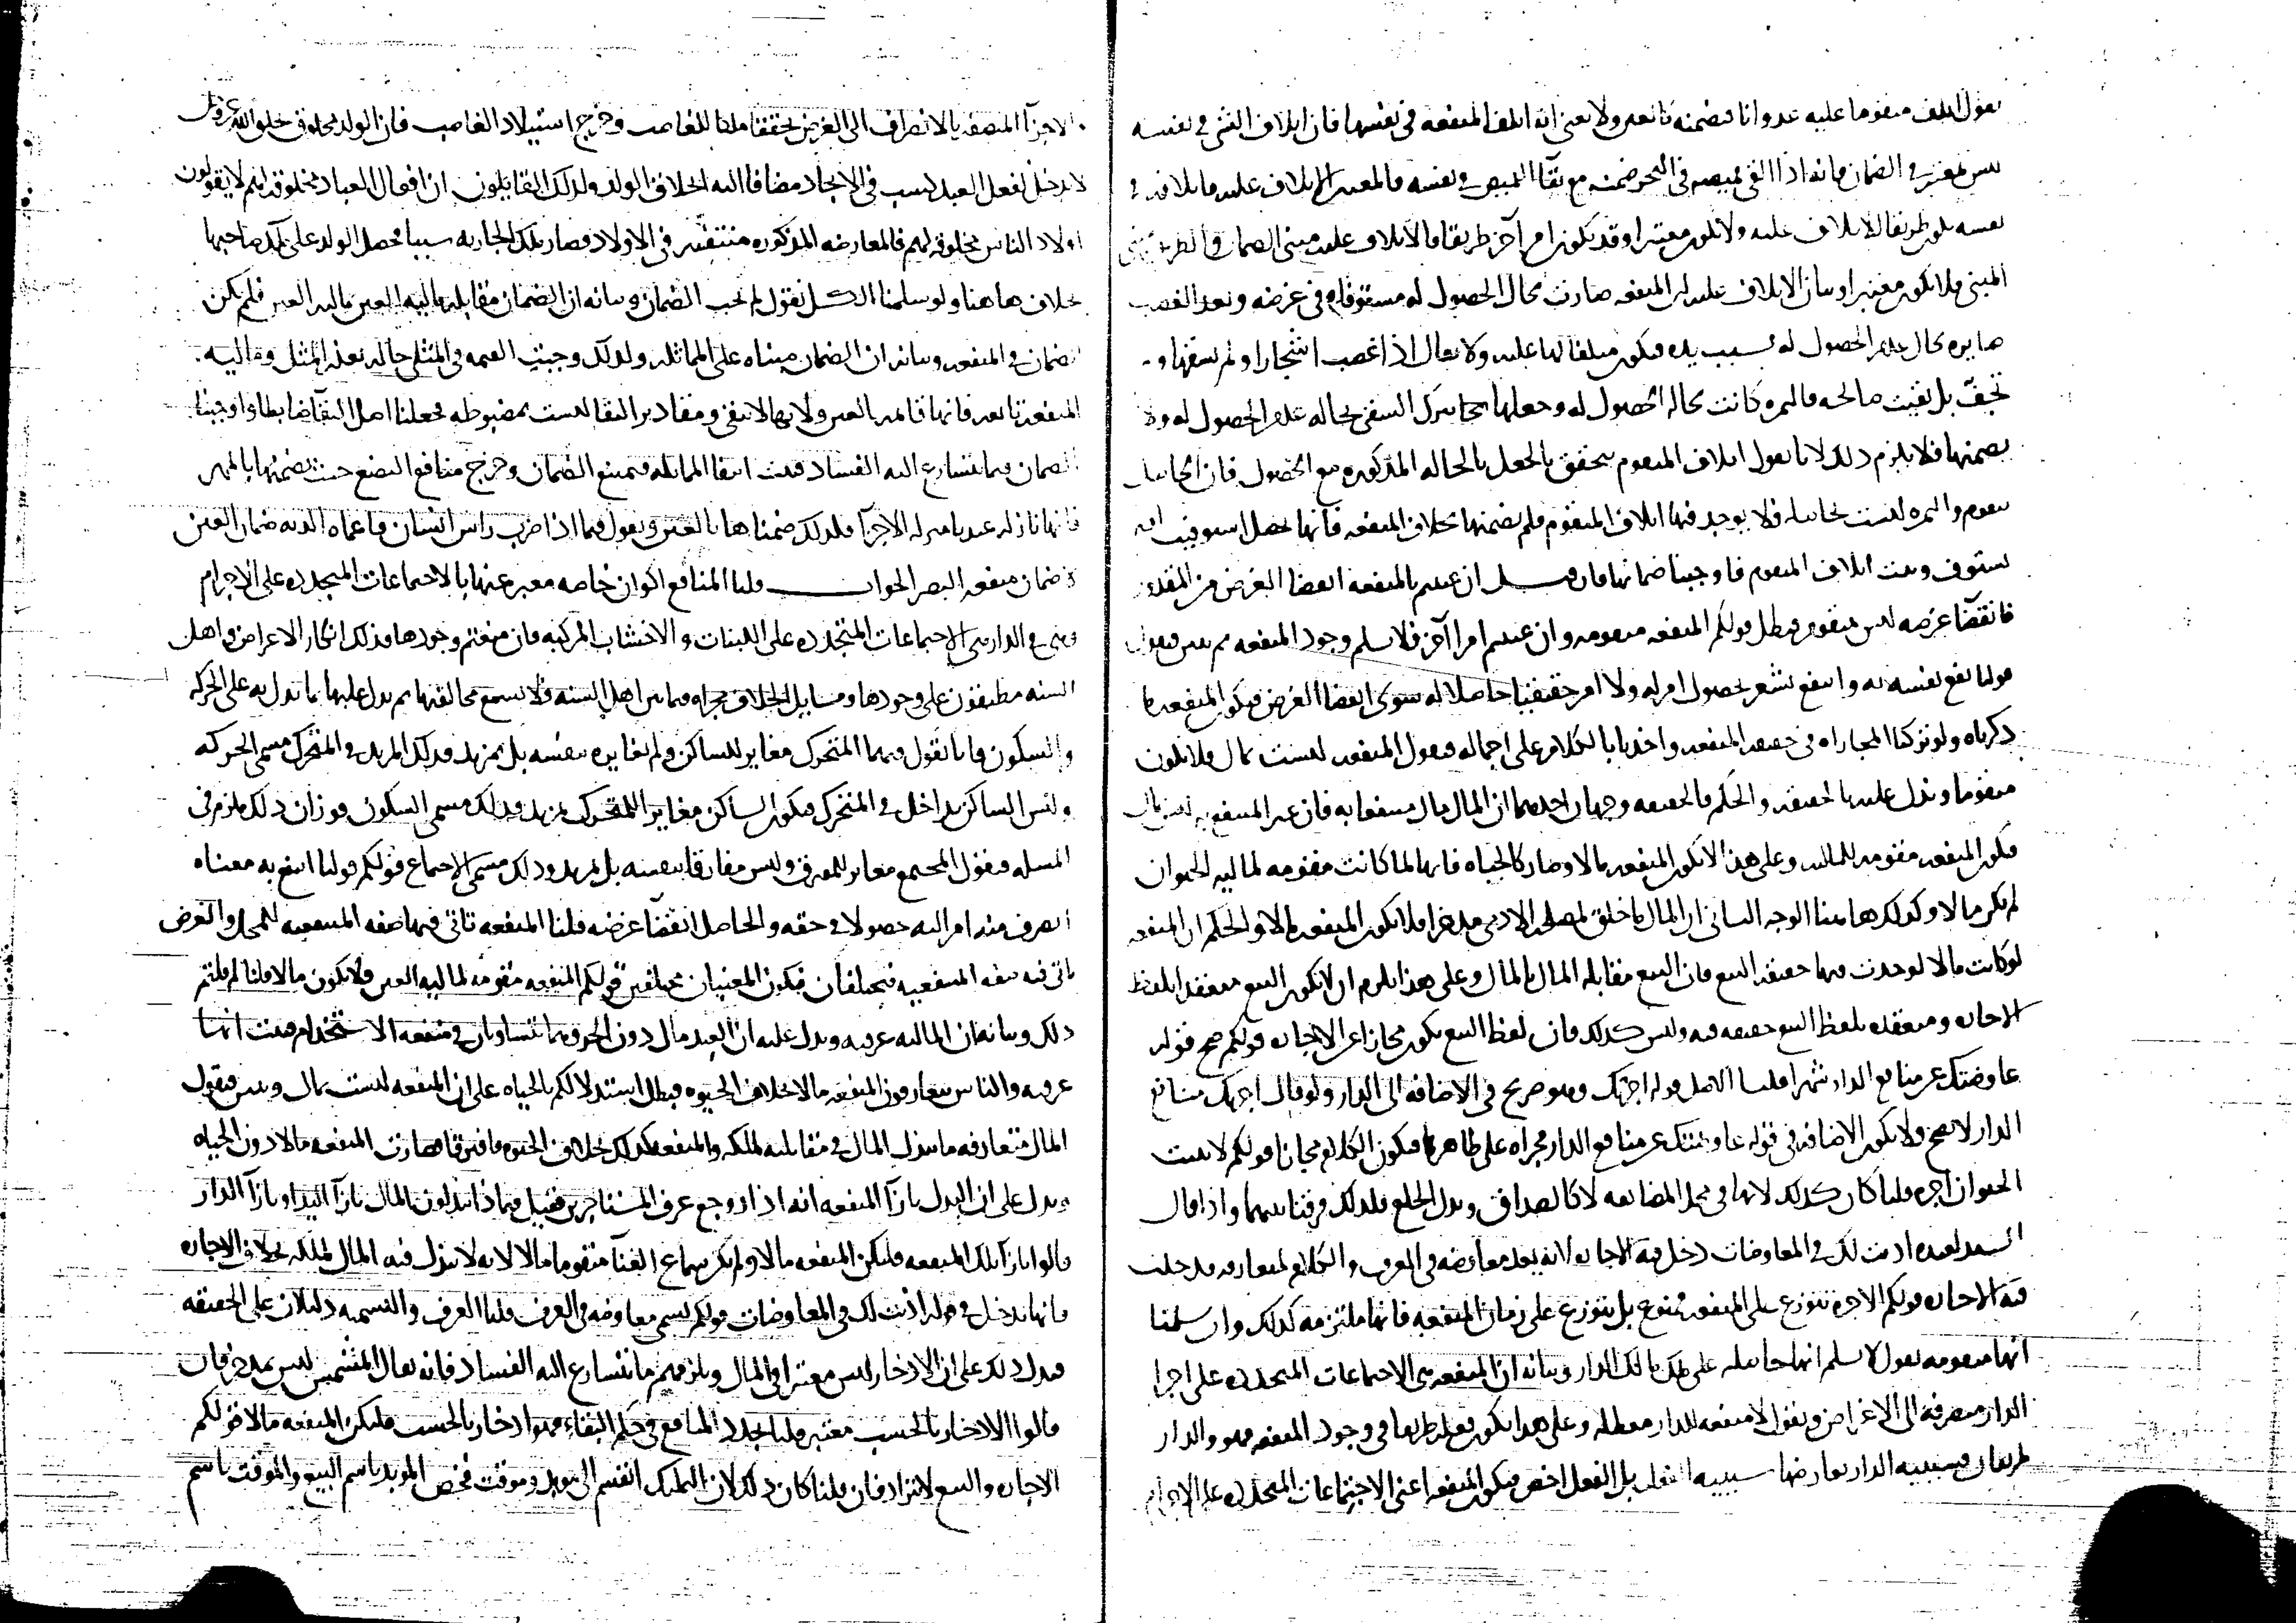 نقول اتلف متقوما عليه عدوانا فيضمنه كالعين ولا نعني انه اتلف المنفعه في نفسها فان اتلاف الشي في نفسه
ليس بمعتبر في الضمان فانه اذا القى قميصه في البحر ضمنه مع بقآ القميص في نفسه فالمعتبر الاتلاف عليه فاتلافه في
نفسه يكون طريقا للاتلاف عليه ولا يكون معتبرا وقد يكون امر آخر طريقا فالاتلاف عليه مبنى الضمان والطريق غير
المبنى فلا يكون معتبرا وبيان الاتلاف عليه ان المنفعه صارت بحال الحصول له مستوفاه في غرضه وبعد الغصب
صايره بحال عدم الحصول له بسبب يده فيكون متلفا لها عليه ولا يقال اذا غصب اشجارا ولم يسقها و
تجفّ بل بقيت صالحه فالثمره كانت بحاله الحصول له وجعلها بترك السقي بحاله عدم الحصول له ولا
يضمنها فلا يلزم ذلك لانا نقول اتلاف المتقوم يتحقق بالجعل بالحاله المذكوره مع الحصول فان
متقوم والثمره ليست فلا يوجد فيها اتلاف المتقوم فلم يضمنها بخلاف المنفعه فانها تحصل استوفيت او لم
تستوف وثبت اتلاف المتقوم فاوجبنا ضمانها فان قيل ان عنيتم بالمنفعه انقضا الغرض من
فانقضآ غرضه ليس بمتقوم فبطل قولكم المنفعه متقومه وان عنيتم امرا آخر فلا نسلم وجود المنفعه ثم
قولنا نفع نفسه به وانتفع يشعر بحصول امر له ولا امر حقيقيا حاصلا له سوى انقضا الغرض فيكون المنفعه ما
ذكرناه ولو تركنا المجاراه في حقيقه المنفعه واخذنا بالكلام على اجماله فنقول المنفعه ليست بمال فلا يكون
متقوما ويدل عليه الحقيقه والحكم فالحقيقه وجهان احدهما ان المال مال منتفعا به فان غير المنتفع به ليس بمال
فيكون المنفعه مقومه للماليه وعلى هذا لا يكون المنفعه مالا وصار كالحياه فانها لما كانت مقومه لماليه الحيوان
لم يكن مالا وكذلك هاهنا الوجه الثاني ان المال ما خلق لمصلحه الادمي مدخرا فلا يكون المنفعه مالا والحكم ان المنفعه
لو كانت مالا لوجدت فيها حقيقه البيع فان البيع مقابله المال بالمال وعلى هذا يلزم ان لا يكون البيع منعقدا بلفظ
الاجاره ومنعقده بلفظ البيع حقيقه فيه وليس كذلك فان لفظ البيع يكون مجازا عن الاجاره قولكم صح قوله
عاوضتك عن منافع الدار شهرا قلنا الاصل قوله اجرتك وهو صريح في الاضافه الى الدار ولو قال اجرتك منافع
الدار لا يصح ولا يكون الاضافه في قوله عاوضتك عن منافع الدار مجراه على ظاهرها فيكون الكلام مجازا قولكم لا يثبت
الحيوان اجره قلنا كان كذلك لانها في محل المضايقه لا كالصداق وبدل الخلع فلذلك فرقنا بينهما واذا قال
السيد لعبده اذنت لك في المعاوضات دخل فيه الاجاره لانه يعد معاوضه في العرف والكلام لمتعارفه فدخلت
فيه الاجاره قولكم الاجره تتوزع على المنفعه ممنوع بل يتوزع على زمان المنفعه فانها ملتزمه كذلك وان سلمنا
انها متقومه نقول لا نسلم انها حاصله على ملك مالك الدار وبيانه ان المنفعه هي الاجتماعات المتجدده على اجزا
الدار منصرفه الى الاغراض ونقول لا منفعه للدار معطله وعلى هذا يكون فعله طريقا في وجود المنفعه فهو والدار
طريقان فسببيه الدار يعارضها سببيه الفعل بل الفعل اخص فيكون المنفعه اعني الاجتماعات المتجدده على الاجزاء
الاجزآ المتصفه بالانصراف الى الغرض تحققا ملكا للغاصب وخرج استيلاد الغاصب فان الولد مخلوق خلق الله عز وجل
لا يدخل لفعل العبد لسبب في الايجاد مضافا اليه الخلاف الولد ولذلك القايلون ان افعال العباد مخلوقه لهم لا يقولون
اولاد الناس مخلوقه لهم فالمعارضه المذكوره منتفيه في الاولاد فصار ملك الجاريه سببا فحصل الولد على ملك صاحبها
بخلاف هاهنا ولو سلمنا الكل نقول لم يجب الضمان وبيانه ان الضمان مقابله ماليه العين بماليه العين فلم يكن
الضمان في المنفعه وبيانه ان الضمان مبناه على المماثله ولذلك وجبت القيمه في المثلي حاله تعذر المثل وماليه
المنفعه تابعه فانها قايمه بالعين ولانها لا تبقى ومقادير البقا ليست بمضبوطه فجعلنا اصل البقآ ضابطا واوجبنا
الضمان فيما يتسارع اليه الفساد فثبت انتفا المماثله فيمتنع الضمان وخرج منافع البضع حيث يضمنها بالمهر
فانها نازله عندنا منزله الاجزآ فلذلك ضمناها بالعين ونقول فيما اذا ضرب راس انسان فاعماه الديه ضمان العين
لا ضمان منفعه البصر الجواب قلنا المنافع اكوان خاصه معبر عنها بالاجتماعات المتجدده على الاجرام
وهي في الدار هي الاجتماعات المتجدده على اللبنات والاخشاب المركبه فان منعتم وجودها فذلك انكار الاعراض واهل
السنه مطبقون على وجودها ومسايل الخلاف مجراه فيما بين اهل السنه فلا يسمع مخالفتها ثم يدل عليها ما يدل به على الحركه
والسكون فانا نقول فيهما المتحرك مغاير للساكن ولم يغايره بنفسه بل بمزيد فذلك المزيد في المتحرك مسمى الحركه
وليس الساكن بداخل في المتحرك فيكون الساكن مغايرا للمتحرك بمزيد فذلك مسمى السكون فوزان ذلك يلزم في
المسله فنقول المجتمع مغاير للمفترق وليس مفارقا بنفسه بل بمزيد وذلك مسمى الاجتماع قولكم قولنا انتفع به معناه
انصرف منه امر اليه حصولا في حقه والحاصل انقضآ غرضه قلنا المنفعه تاتي فيها صفه المنتفعيه للمحل والغرض
ياتي فيه صفه المنتفعيه فيختلفان فيكون المعنيان مختلفين قولكم المنفعه مقومه لماليه العين فلا يكون مالا قلنا لم قلتم
ذلك وبيانه ان الماليه عرفيه ويدل عليه ان العبد مال دون الحر فيما يتساويان في منفعه الاستخدام فثبت انها
عرفيه والناس يتعارفون المنفعه مالا بخلاف الحيوه فبطل استدلالكم بالحياه على ان المنفعه ليست بمال ونبين فنقول
المال متعارفه ما يبذل المال في مقابلته لملكه والمنفعه كذلك بخلاف الحيوه فافترقا فصارت المنفعه مالا دون الحياه
ويدل على ان البدل بازآ المنفعه انه اذا روجع عرف المستاجرين فقيل فيما ذا تبذلون المال بازآ اليد او بازآ الدار
قالوا بازآ تلك المنفعه فليكن المنفعه مالا ولم يكن سماع الغنآ متقوما مالا لانه لا يبذل فيه المال لملكه بخلاف الاجاره
فانها تدخل في قوله اذنت لك في المعاوضات قولكم يسمى معاوضه في العرف قلنا العرف والتسميه دليلان على الحقيقه
فيدل ذلك على ان الادخار ليس معتبرا في المال ويلزمهم ما يتسارع اليه الفساد فانه يقال المشمس ليس بمدخر فان
قالوا الادخار بالحسب معتبر قلنا تجدد المنافع في حكم البقاء فهو ادخار بالحسب فليكن المنفعه مالا قولكم
الاجاره والبيع لا تترادفان قلنا كان ذلك لان التمليك انقسم الى مؤبد وموقت فخص المؤبد باسم البيع والموقت باسم